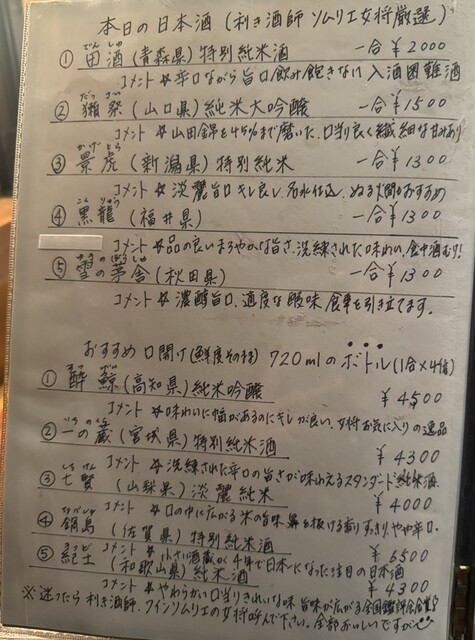 本日の日本酒(利き酒師 ソムリエ女将厳選)
① 田酒(青森県)特別純米酒 一合¥2000
でん しゅ
コメント 辛口ながら旨口飲み飽きない 入酒困難酒
② 獺祭(山口県)純米大吟醸 一合¥1500
だっ さい
コメント 山田錦を45%まで磨いた、口当り良く繊細な甘みあり
③ 景虎(新潟県)特別純米 一合¥1300
かげ とら
コメント 淡麗旨口 キレ良し 名水仕込、ぬる燗もおすすめ
④ 黒龍(福井県) 一合¥1300
こく りゅう
コメント 品の良いまろやかな旨さ、洗練された味わい、食中酒むり!
⑤ 雪の茅舎(秋田県) 一合¥1300
ゆき ぼうしゃ
コメント 濃醇旨口、適度な酸味 食事を引き立てます。
おすすめ 口開け(鮮度その待) 720mlのボトル(1合×4倍)
① 酔鯨(高知県)純米吟醸 ¥4500
コメント 味わいに幅があるのにキレが良い、女将お気に入りの逸品
② 一の蔵(宮城県)特別純米酒 ¥4300
いち のくら
コメント 洗練された辛口の旨さが味わえるスタンダード純米酒
③ 七賢(山梨県)淡麗純米 ¥4000
しち けん
コメント 口の中に広がる米の旨味 鼻を抜ける香り すっきり、やや辛口。
④ 鍋島(佐賀県)特別純米酒 ¥5500
なべしま
コメント 小さい酒蔵が4年で日本一になった注目の日本酒
⑤ 紀土(和歌山県)純米酒 ¥4300
きっど
コメント やわらかい口当りきれいな味 旨味が広がる全国鑑評会金賞
※迷ったら利き酒師、ワインソムリエの女将呼んで下さい。全部おいしいですが